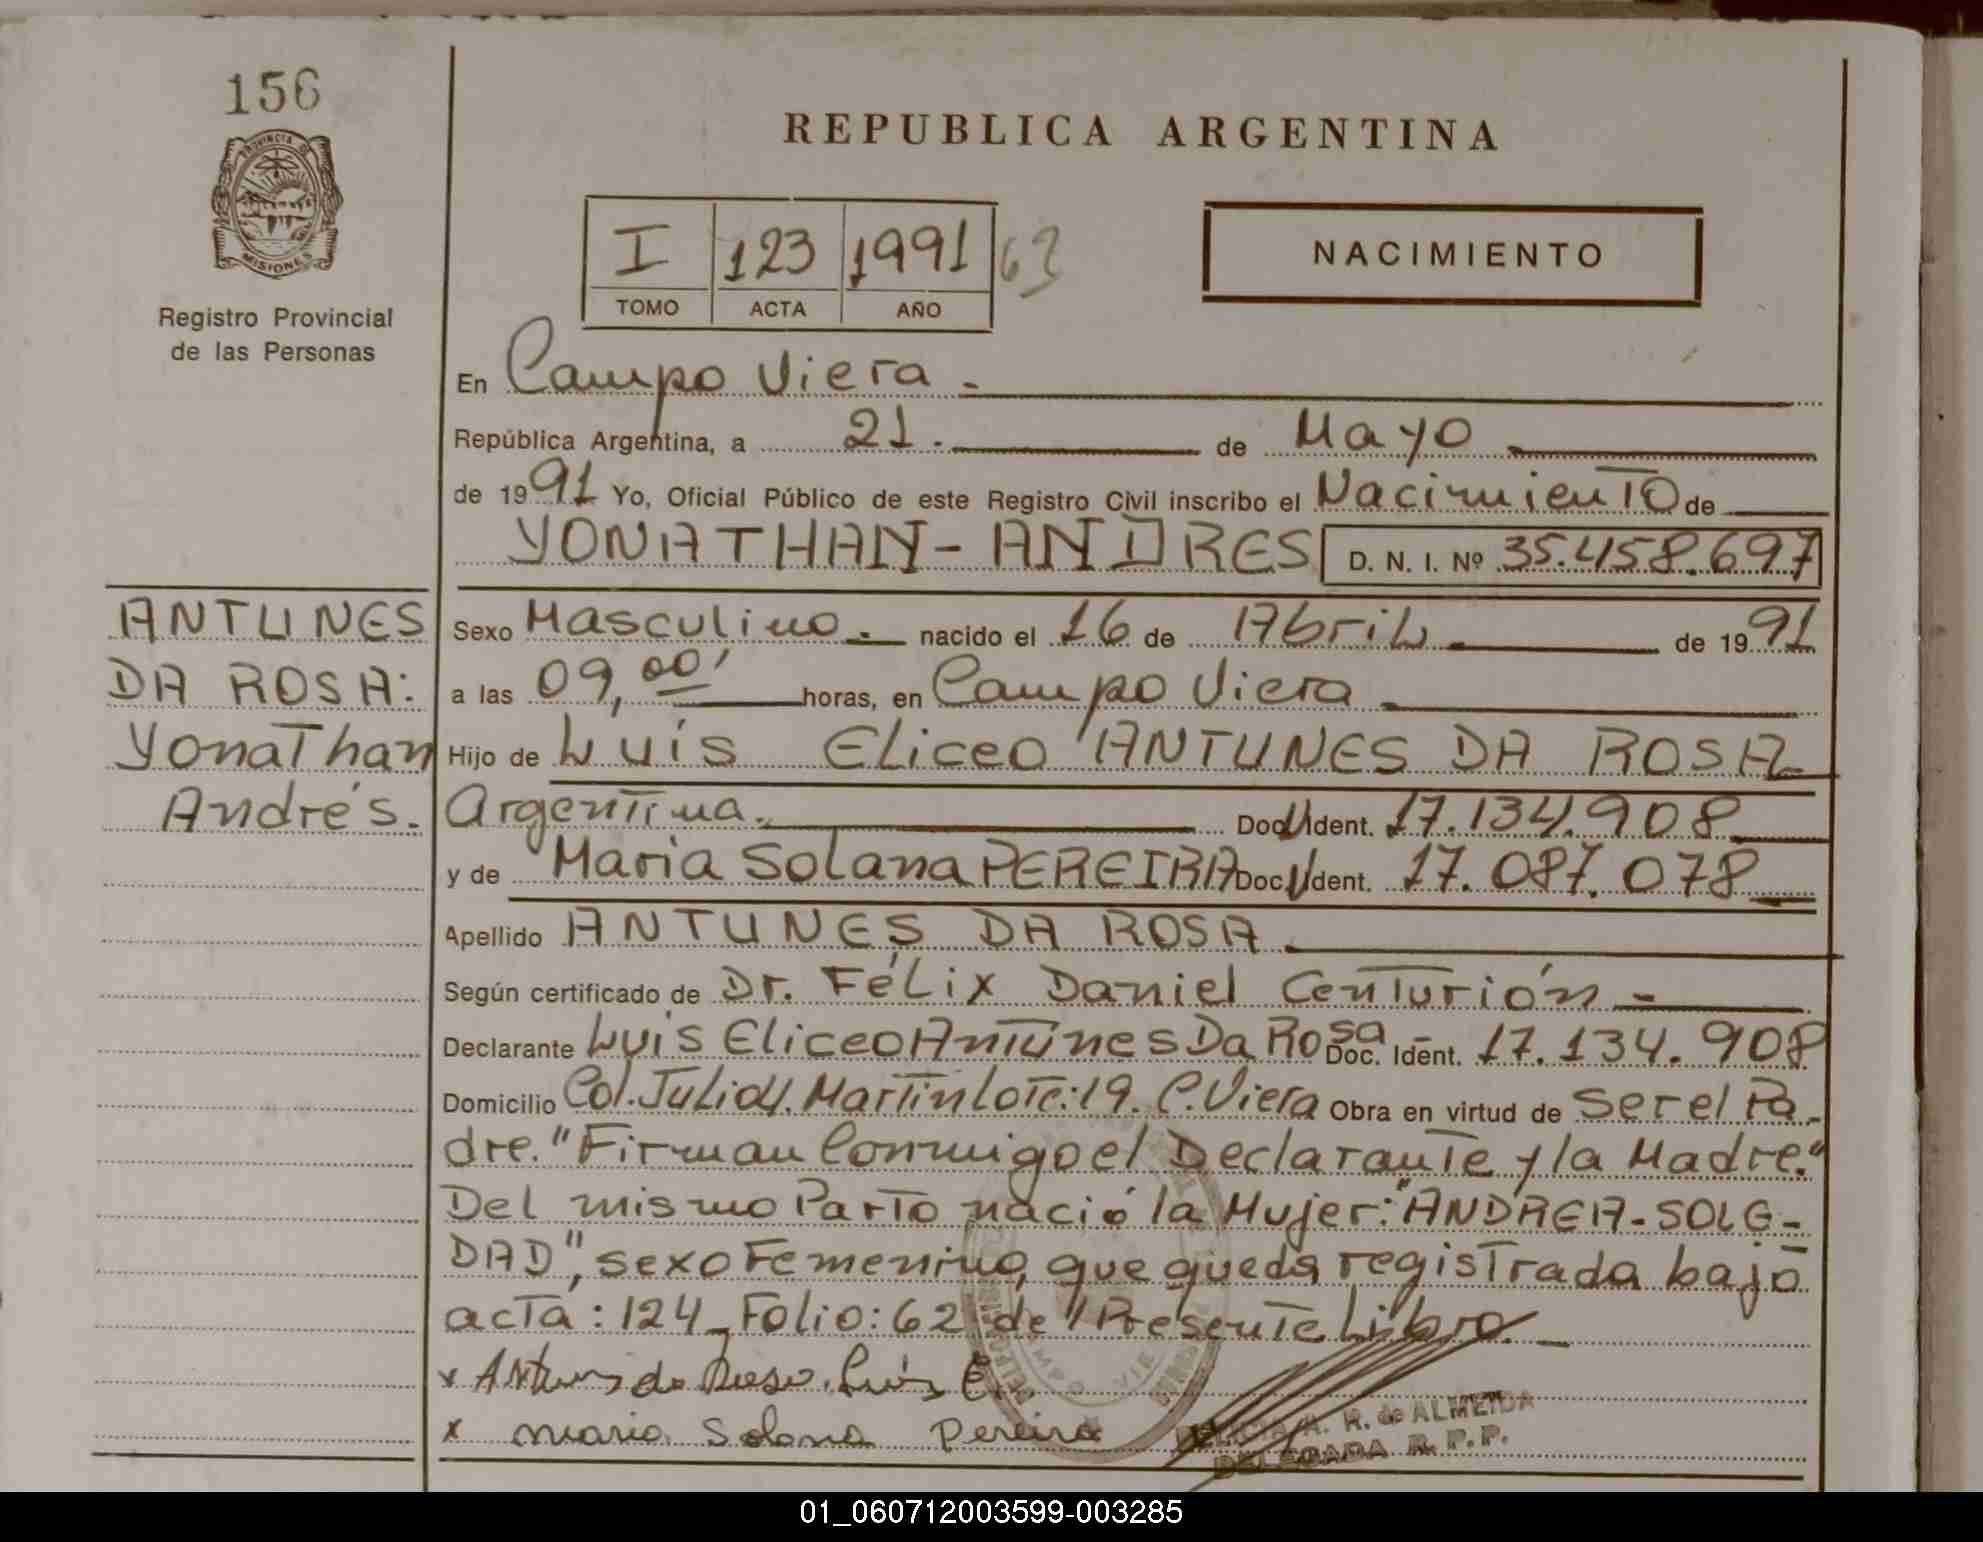 156
PROVINCIA DE
MISIONES
Registro Provincial
de las Personas
REPUBLICA ARGENTINA
I 123 1991 63
TOMO ACTA AÑO
NACIMIENTO
En Campo Viera.
República Argentina, a 21. de Mayo
de 1991 Yo, Oficial Público de este Registro Civil inscribo el Nacimiento de
YONATHAN-ANDRES D. N. I. Nº 35.458.697
ANTUNES
DA ROSA:
Yonathan
Andrés.
Sexo Masculino. nacido el 16 de Abril de 1991
a las 09,00' horas, en Campo Viera
Hijo de Luis Eliceo ANTUNES DA ROSA
Argentina. Doc. Ident. 17.134.908
y de Maria Solana PEREIRA Doc. Ident. 17.087.078
Apellido ANTUNES DA ROSA
Según certificado de Dr. Félix Daniel Centurión
Declarante Luis Eliceo Antunes Da Rosa Doc. Ident. 17.134.908
Domicilio Col. Julio U. Martin Lote: 19. C. Viera Obra en virtud de ser el Pa-
dre. "Firman Conmigo el Declarante y la Madre."
Del mismo Parto nació la Mujer: "ANDREA-SOLE-
DAD", sexo Femenino, que queda registrada bajo
acta: 124_Folio: 62 de "Presente Libro.
x Antunes da Rosa, Luis E.
x Maria Solana Pereira
A. R. de ALMEIDA
DELEGADA R. P. P.
01_060712003599-003285